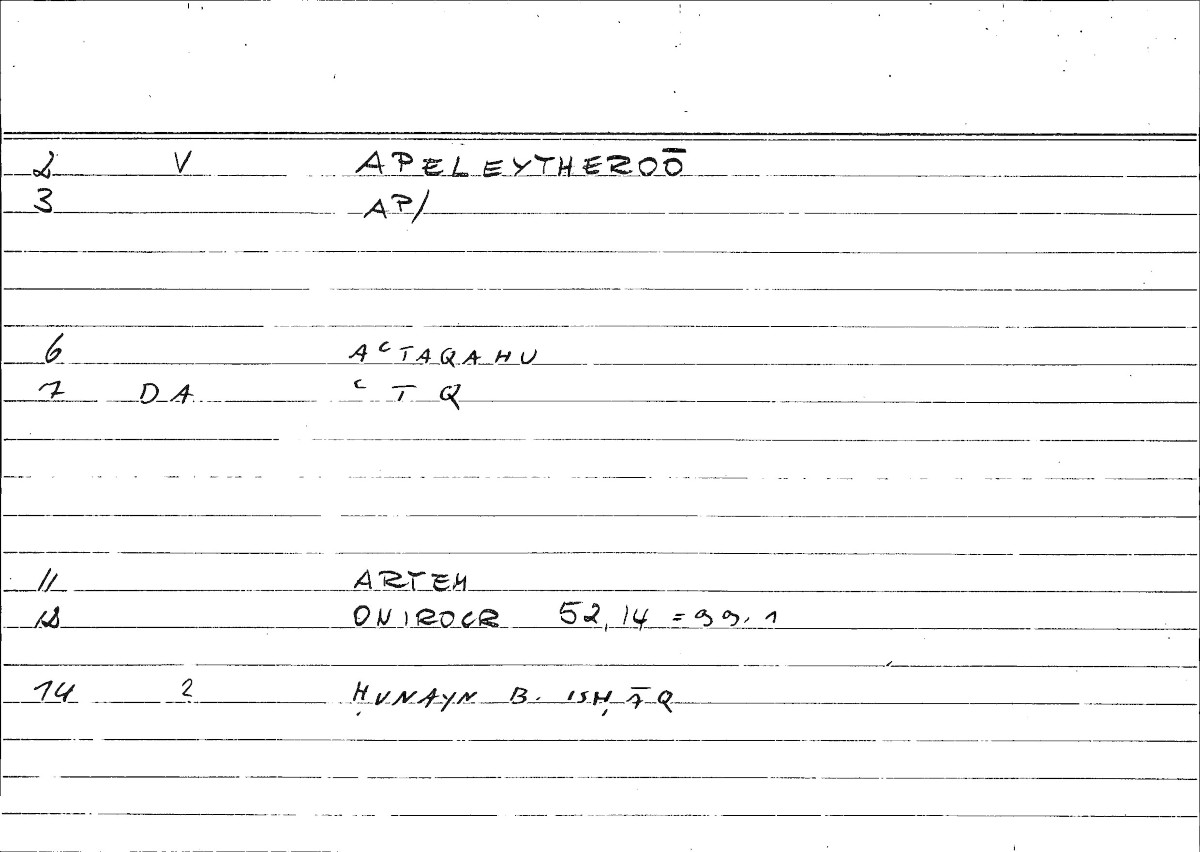 2 V APELEYTHEROŌ
3 AP/
6 AᶜTAQAHU
7 DA ᶜ T Q
11 ARTEM
12 ONIROCR 52,14 = 99.1
14 2 ḤUNAYN B. ISḤĀQ